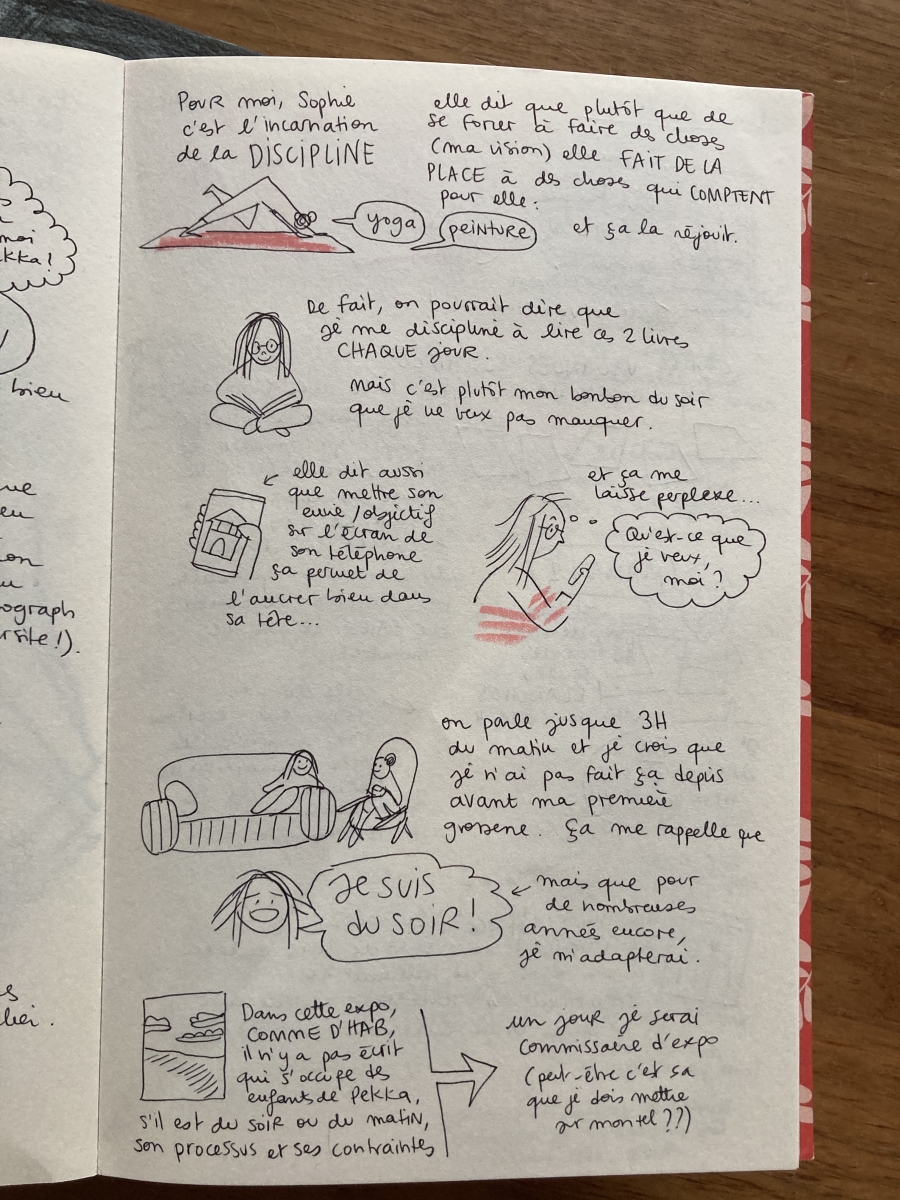 moi
kka!
bien
ograph
site!).
Pour moi, Sophie
c'est l'incarnation
de la DISCIPLINE
elle dit que plutôt que de
se forcer à faire des choses
(ma vision) elle FAIT DE LA
PLACE à des choses qui COMPTENT
pour elle :
yoga
PEINTURE
et ça la réjouit.
De fait, on pourrait dire que
je me discipline à lire ces 2 livres
CHAQUE JOUR.
mais c'est plutôt mon bonbon du soir
que je ne veux pas manquer.
elle dit aussi
que mettre son
envie / objectif
sur l'écran de
son téléphone
ça permet de
l'ancrer bien dans
sa tête...
et ça me
laisse perplexe...
Qu'est-ce que
je veux,
moi ?
on parle jusque 3H
du matin et je crois que
je n'ai pas fait ça depuis
avant ma première
grossesse. ça me rappelle que
Je suis
du SOIR !
mais que pour
de nombreuses
années encore,
je m'adapterai.
Dans cette expo,
COMME D'HAB,
il n'y a pas écrit
qui s'occupe des
enfants de Pekka,
s'il est du soir ou du matin,
son processus et ses contraintes
un jour je serai
commissaire d'expo
(peut-être c'est ça
que je dois mettre
sur mon tel ??)